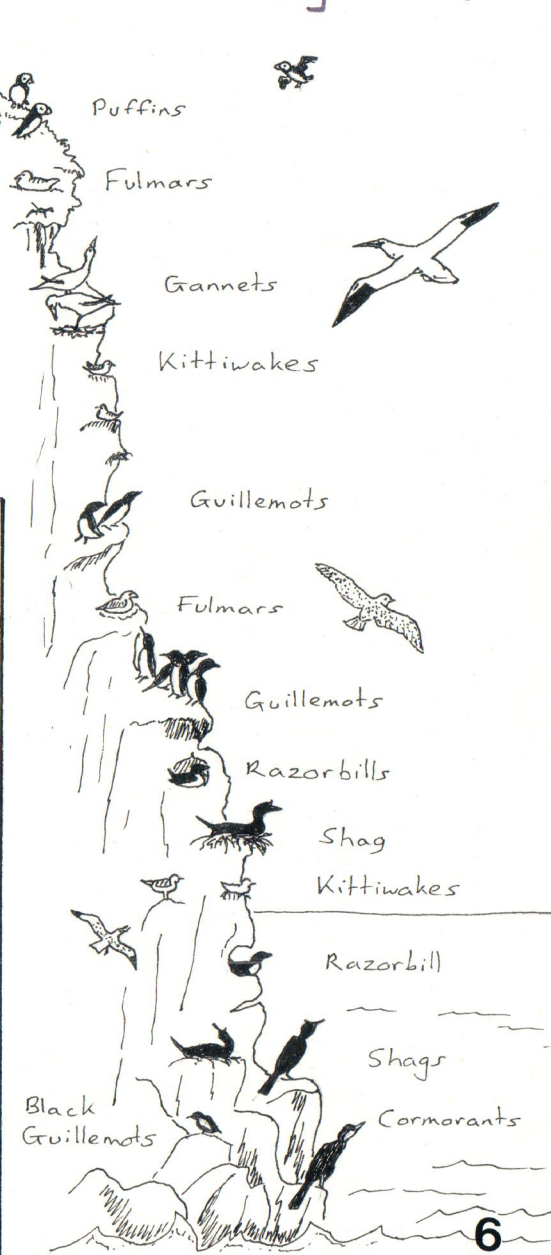 Puffins
Fulmars
Gannets
Kittiwakes
Guillemots
Fulmars
Guillemots
Razorbills
Shag
Kittiwakes
Razorbill
Shags
Black
Guillemots
Cormorants
6